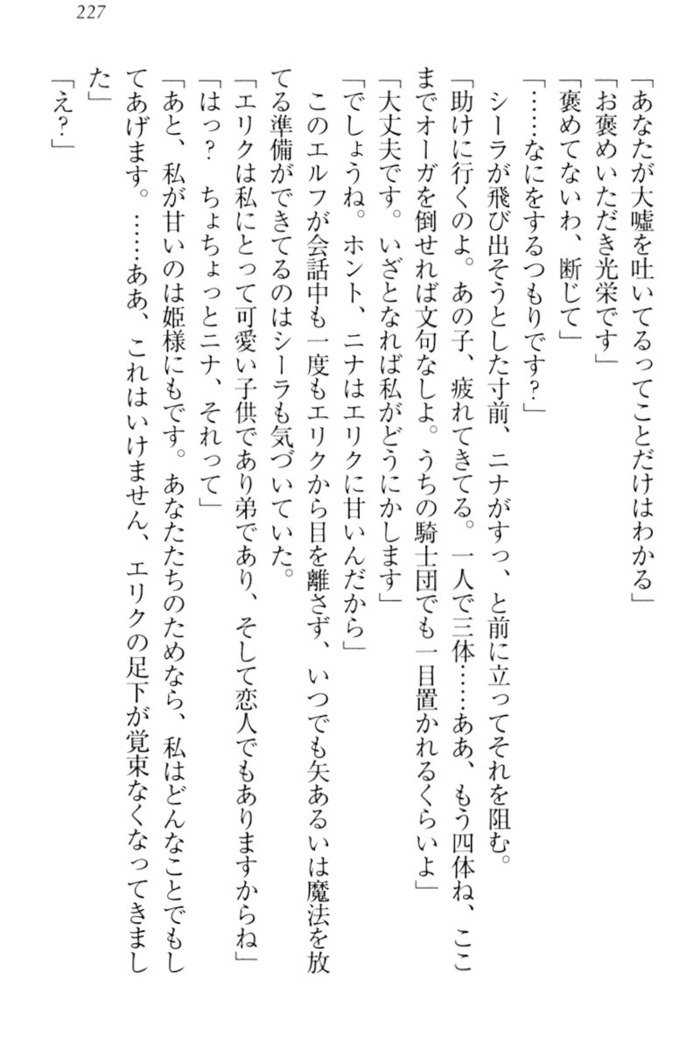 227
「あなたが大嘘を吐いてるってことだけはわかる」
「お褒めいただき光栄です」
「褒めてないわ、断じて」
「……なにをするつもりです?」
　シーラが飛び出そうとした寸前、ニナがすっ、と前に立ってそれを阻む。
「助けに行くのよ。あの子、疲れてきてる。一人で三体……ああ、もう四体ね、ここ
までオーガを倒せれば文句なしよ。うちの騎士団でも一目置かれるくらいよ」
「大丈夫です。いざとなれば私がどうにかします」
「でしょうね。ホント、ニナはエリクに甘いんだから」
　このエルフが会話中も一度もエリクから目を離さず、いつでも矢あるいは魔法を放
てる準備ができてるのはシーラも気づいていた。
「エリクは私にとって可愛い子供であり弟であり、そして恋人でもありますからね」
「はっ?　ちょちょっとニナ、それって」
「あと、私が甘いのは姫様にもです。あなたたちのためなら、私はどんなことでもし
てあげます。……ああ、これはいけません、エリクの足下が覚束なくなってきまし
た」
「え?」